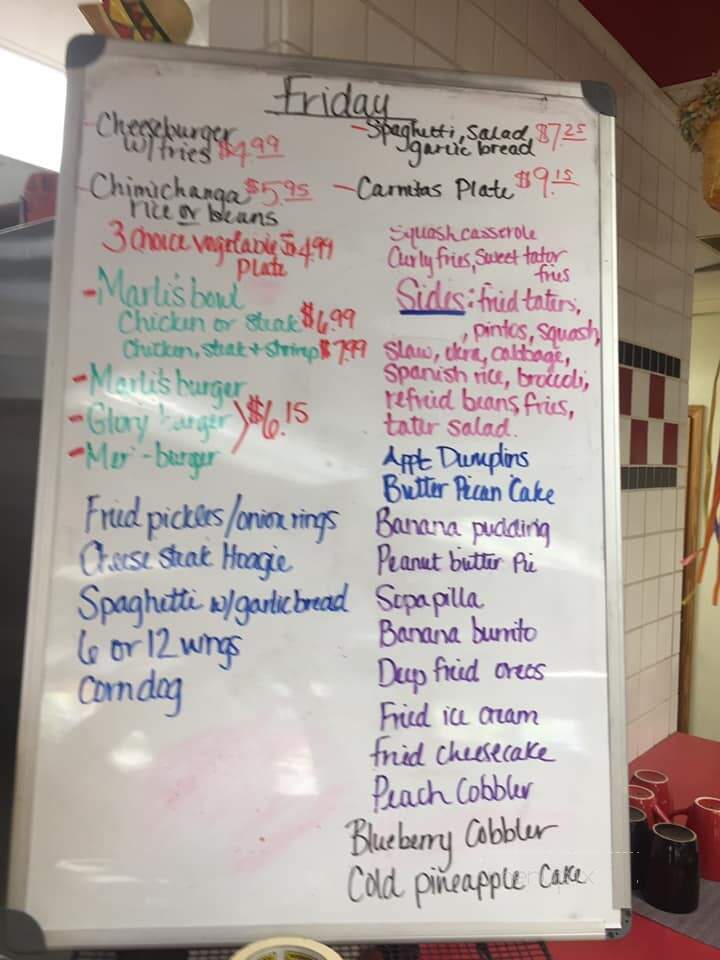 Friday
- Cheeseburger
w/ fries $4.99
- Chimichanga $5.95
rice or beans
3 choice vegetable $4.99
plate
- Marli's bowl
Chicken or steak $6.99
Chicken, steak + shrimp $7.99
- Marli's burger
- Glory burger } $6.15
- Mer -burger
Fried pickles/onion rings
Cheese steak Hoagie
Spaghetti w/garlic bread
6 or 12 wings
Corn dog
- Spaghetti, Salad, $7.25
garlic bread
- Carnitas Plate $9.15
Squash casserole
Curly fries, Sweet tator
fries
Sides: fried taters,
, pintos, squash,
slaw, okra, cabbage,
Spanish rice, broccoli,
refried beans, fries,
tater salad.
Appl Dumplins
Butter Pecan Cake
Banana pudding
Peanut butter Pie
Sopapilla
Banana burrito
Deep fried oreos
Fried ice cream
fried cheesecake
Peach Cobbler
Blueberry Cobbler
Cold pineapple Cake